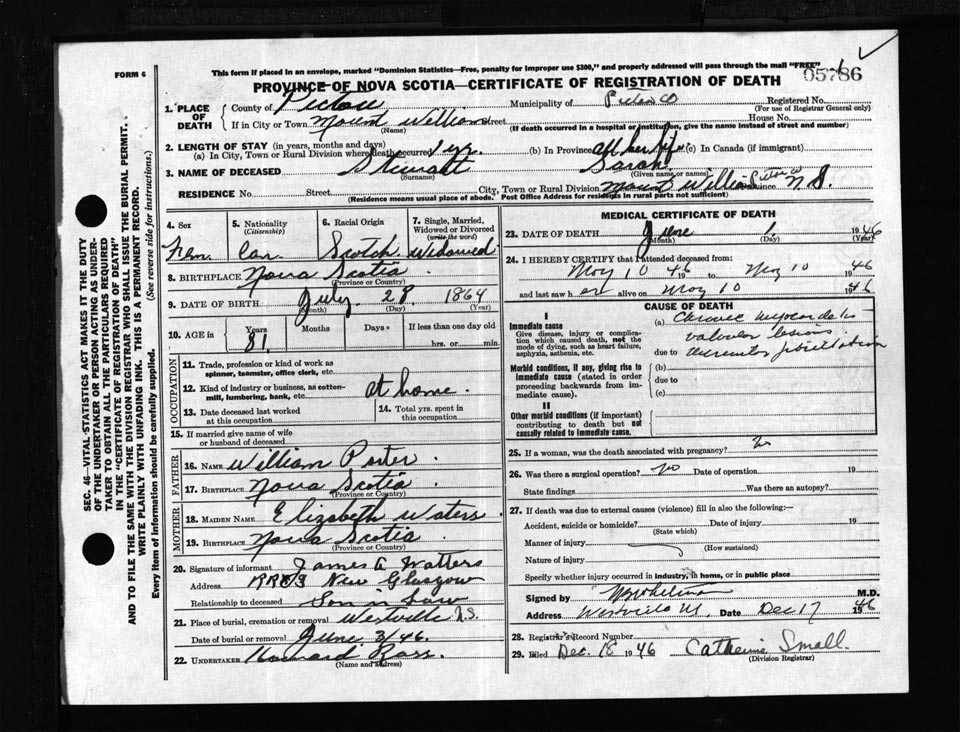 FORM 6
This form if placed in an envelope, marked "Dominion Statistics—Free, penalty for improper use $300," and properly addressed will pass through the mail "FREE"
05786
PROVINCE OF NOVA SCOTIA—CERTIFICATE OF REGISTRATION OF DEATH
1. PLACE OF DEATH
County of Pictou Municipality of Pictou Co Registered No.
(For use of Registrar General only)
If in City or Town Mount William Street House No.
(Name) (If death occurred in a hospital or institution, give the name instead of street and number)
2. LENGTH OF STAY (in years, months and days)
(a) In City, Town or Rural Division where death occurred 1 yr. (b) In Province all her life (c) In Canada (if immigrant)
3. NAME OF DECEASED Stewart Sarah
(Surname) (Given name or names)
RESIDENCE No. Street City, Town or Rural Division Mount William Pictou Co Province N.S.
(Residence means usual place of abode. Post Office Address for residents in rural parts not sufficient)
4. Sex
Fem.
5. Nationality
(Citizenship)
Can.
6. Racial Origin
Scotch
7. Single, Married, Widowed or Divorced
(write the word)
Widowed
8. BIRTHPLACE Nova Scotia
(Province or Country)
9. DATE OF BIRTH July 28 1864
(Month) (Day) (Year)
10. AGE in Years Months Days If less than one day old
81 hrs. or min.
OCCUPATION
11. Trade, profession or kind of work as spinner, teamster, office clerk, etc.
12. Kind of industry or business, as cotton-mill, lumbering, bank, etc. at home
13. Date deceased last worked at this occupation
14. Total yrs. spent in this occupation
15. If married give name of wife or husband of deceased
FATHER
16. NAME William Porter
17. BIRTHPLACE Nova Scotia
(Province or Country)
MOTHER
18. MAIDEN NAME Elizabeth Waters
19. BIRTHPLACE Nova Scotia
(Province or Country)
20. Signature of informant James A Watters
Address New Glasgow
Relationship to deceased Son in law
21. Place of burial, cremation or removal Westville N.S.
Date of burial or removal June 3/46.
22. UNDERTAKER Howard Ross.
(Name and address)
MEDICAL CERTIFICATE OF DEATH
23. DATE OF DEATH June 1. 1946
(Month) (Day) (Year)
24. I HEREBY CERTIFY that I attended deceased from:
May 10 46 to May 10 1946
and last saw her alive on May 10 1946
CAUSE OF DEATH
I
Immediate cause
Give disease, injury or complication which caused death, not the mode of dying, such as heart failure, asphyxia, asthenia, etc.
(a) Chronic
valvular lesions
due to fibrillation
Morbid conditions, if any, giving rise to immediate cause (stated in order proceeding backwards from immediate cause).
(b)
due to
(c)
II
Other morbid conditions (if important) contributing to death but not causally related to immediate cause.
25. If a woman, was the death associated with pregnancy? No
26. Was there a surgical operation? No Date of operation 19
State findings Was there an autopsy?
27. If death was due to external causes (violence) fill in also the following:—
Accident, suicide or homicide? Date of injury 19
(State which)
Manner of injury
(How sustained)
Nature of injury
Specify whether injury occurred in industry, in home, or in public place
Signed by M.D.
Address Westville Date Dec 17 1946
28. Registrar's Record Number
29. Filed Dec. 18 1946 Catherine Small.
(Division Registrar)
SEC. 46—VITAL-STATISTICS ACT MAKES IT THE DUTY
OF THE UNDERTAKER OR PERSON ACTING AS UNDER-
TAKER TO OBTAIN ALL THE PARTICULARS REQUIRED
IN THE "CERTIFICATE OF REGISTRATION OF DEATH"
AND TO FILE THE SAME WITH THE DIVISION REGISTRAR WHO SHALL ISSUE THE BURIAL PERMIT.
WRITE PLAINLY WITH UNFADING INK. THIS IS A PERMANENT RECORD.
Every item of information should be carefully supplied. (See reverse side for instructions.)